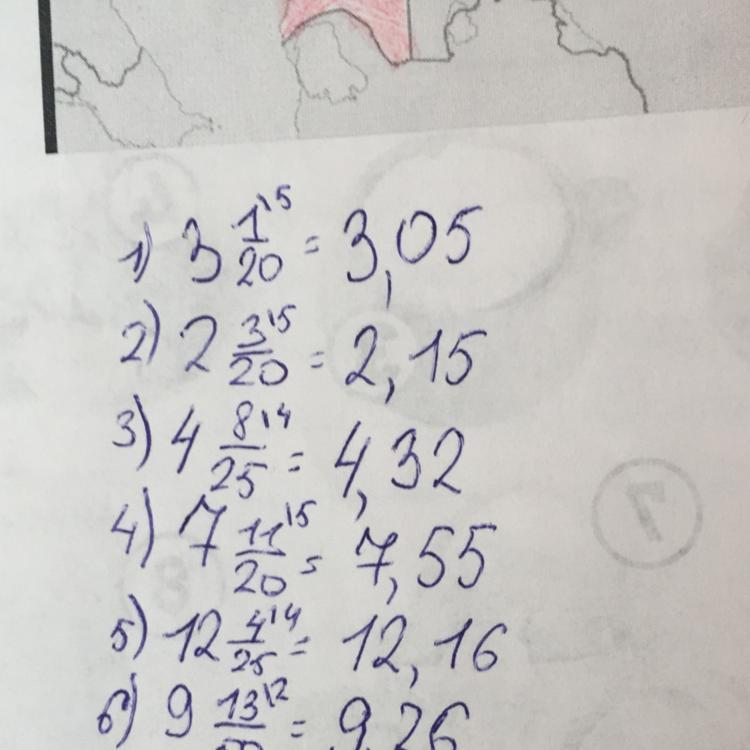 1) 3 1\5/20 = 3,05
2) 2 3\5/20 = 2,15
3) 4 8\4/25 = 4,32
4) 7 11\5/20 = 7,55
5) 12 4\4/25 = 12,16
6) 9 13\2/ = 9,26
7